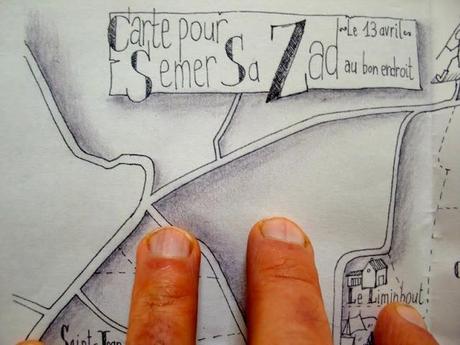 Carte pour
Semer Sa Zad
~Le 13 avril~
au bon endroit
Le Liminbout
Saint-Jean